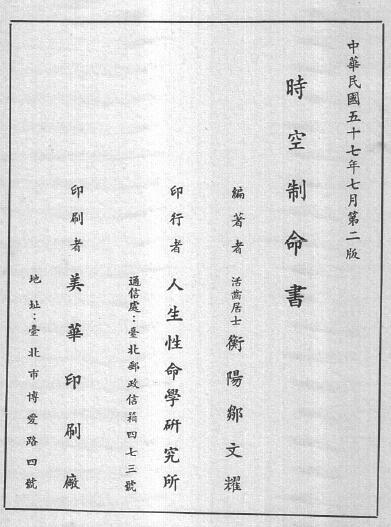 中華民國五十七年七月第二版
時空制命書
編著者 活齋居士 衡陽鄒文耀
印行者 人生性命學研究所
通信處：臺北郵政信箱四七三號
印刷者 美華印刷廠
地址：臺北市博愛路四號